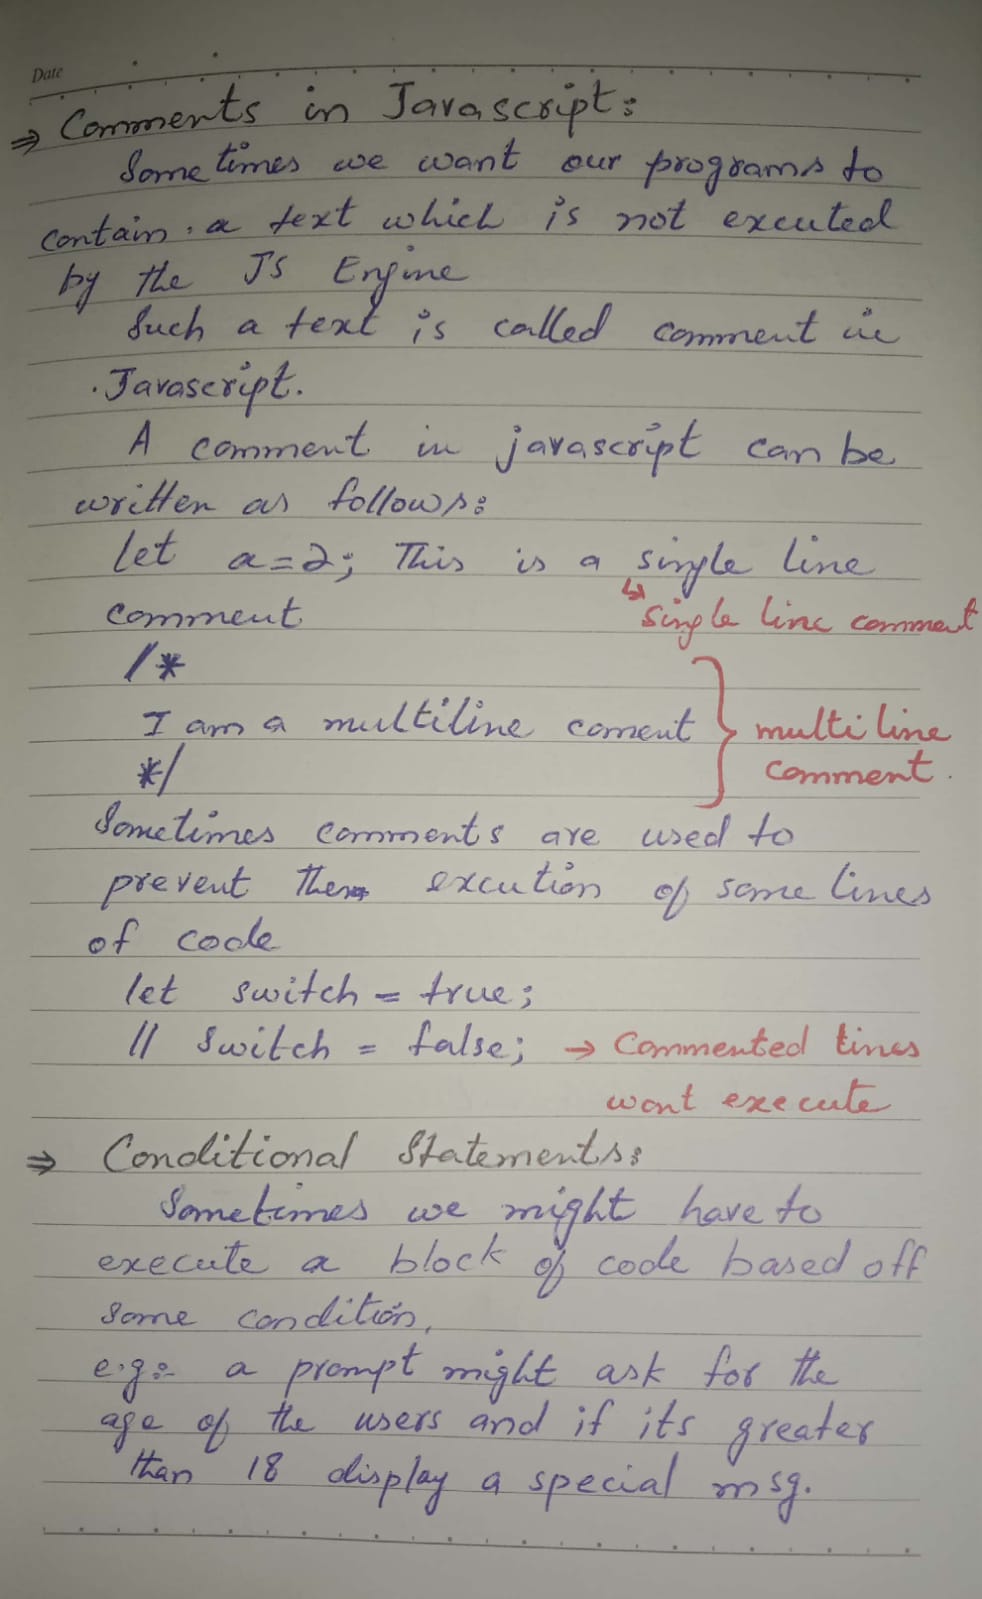 Date
⇒ Comments in Javascript:
Sometimes we want our programs to
contain a text which is not excuted
by the JS Engine
Such a text is called comment in
Javascript.
A comment in javascript can be
written as follows:
let a=2; This is a single line
comment ↳ single line comment
/*
I am a multiline coment } multiline
*/ comment.
Sometimes comments are used to
prevent the excution of some lines
of code
let switch = true;
// switch = false; → Commented lines
wont execute
⇒ Conditional Statements:
Sometimes we might have to
execute a block of code based off
some condition,
e.g:- a prompt might ask for the
age of the users and if its greater
than 18 display a special msg.